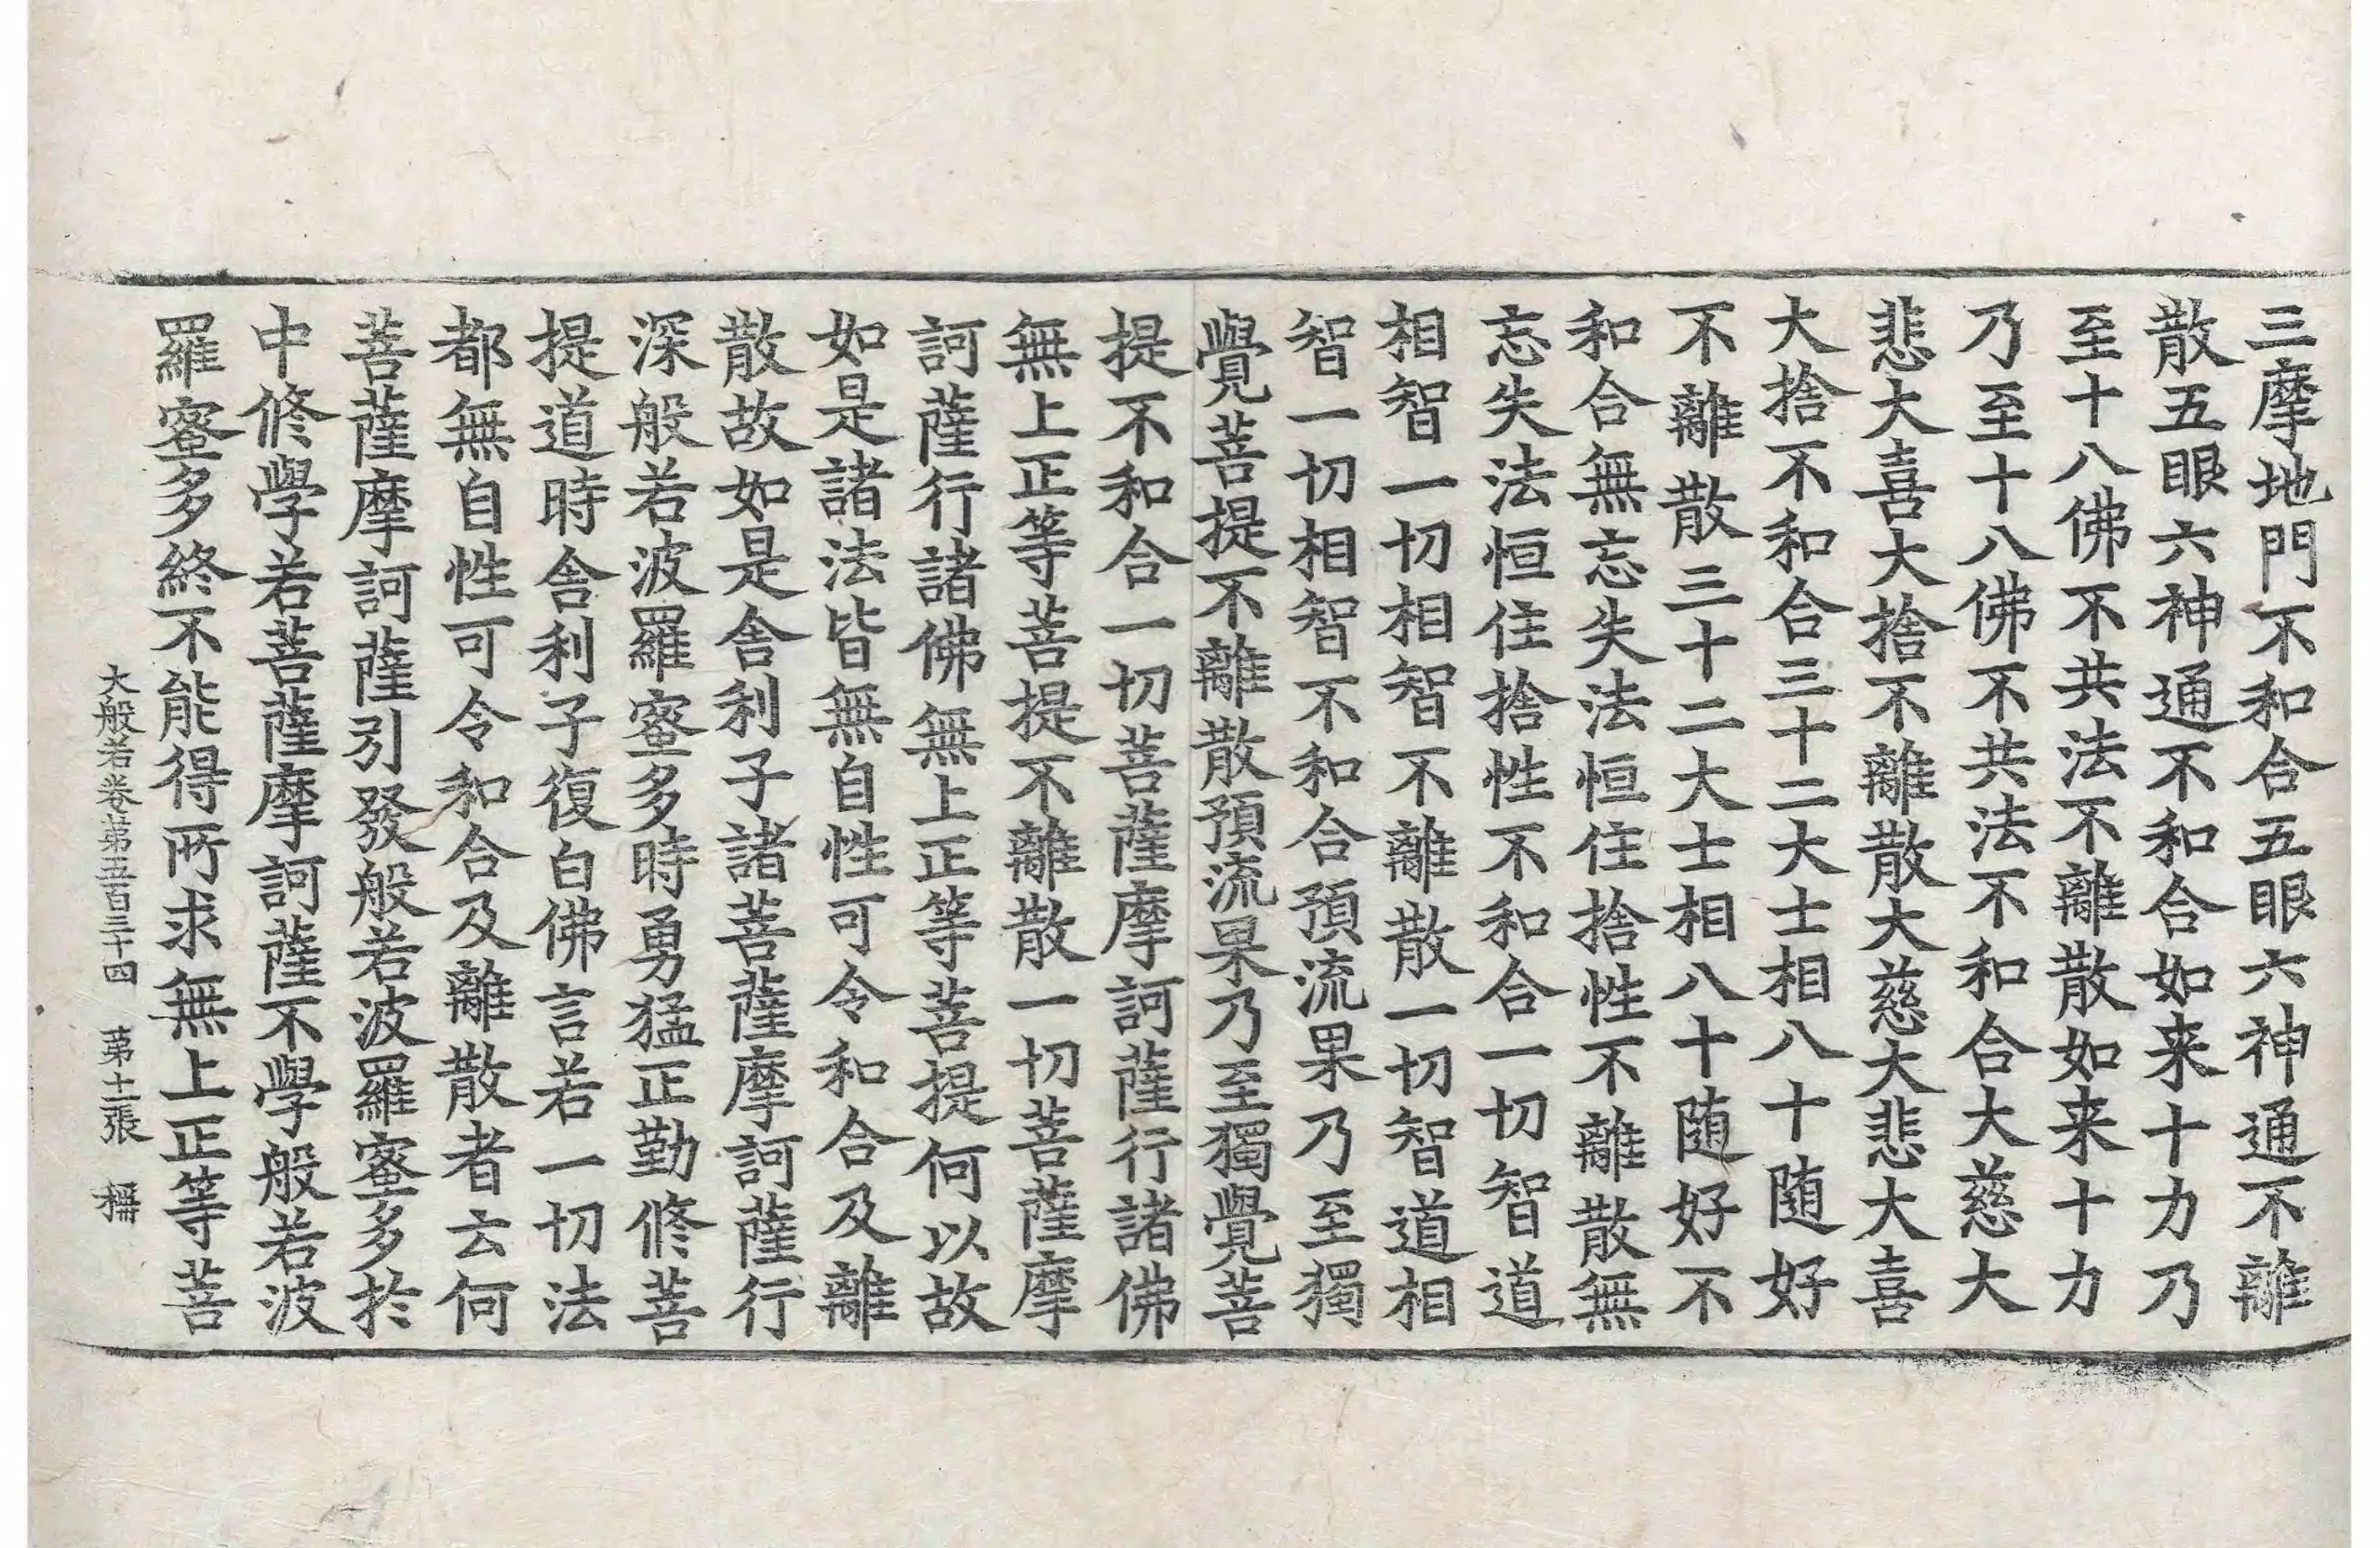 三摩地門不和合五眼六神通不離
散五眼六神通不和合如来十力乃
至十八佛不共法不離散如来十力
乃至十八佛不共法不和合大慈大
悲大喜大捨不離散大慈大悲大喜
大捨不和合三十二大士相八十随好
不離散三十二大士相八十随好不
和合無忘失法恒住捨性不離散無
忘失法恒住捨性不和合一切智道
相智一切相智不離散一切智道相
智一切相智不和合預流果乃至獨
覺菩提不離散預流果乃至獨覺菩
提不和合一切菩薩摩訶薩行諸佛
無上正等菩提不離散一切菩薩摩
訶薩行諸佛無上正等菩提何以故
如是諸法皆無自性可令和合及離
散故如是舍利子諸菩薩摩訶薩行
深般若波羅蜜多時勇猛正勤修菩
提道時舍利子復白佛言若一切法
都無自性可令和合及離散者云何
菩薩摩訶薩引發般若波羅蜜多於
中修學若菩薩摩訶薩不學般若波
羅蜜多終不能得所求無上正等菩
大般若卷第五百三十四 第十二張 稱